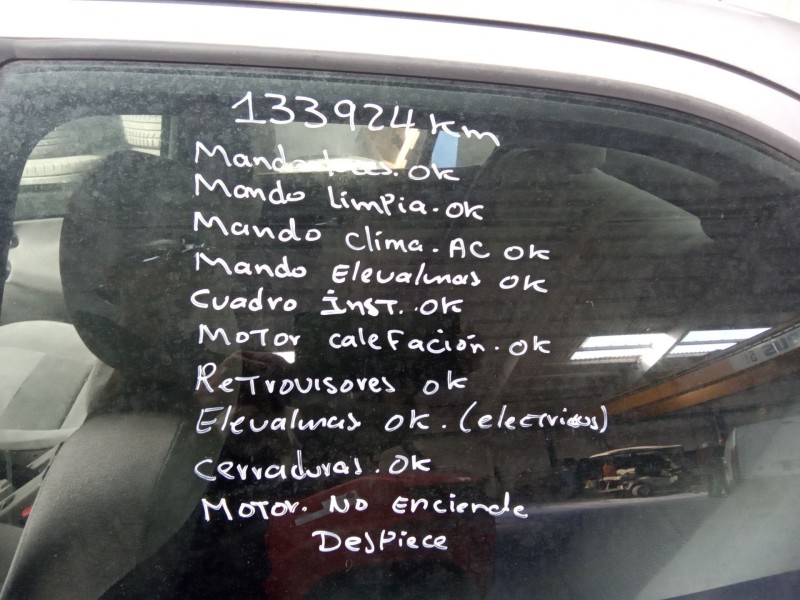 133924 km
Mando luces. OK
Mando Limpia. OK
Mando Clima. AC OK
Mando Elevalunas OK
Cuadro Inst. OK
Motor calefación. OK
Retrovisores OK
Elevalunas OK. (electricos)
Cerraduras. OK
Motor. No enciende
Despiece